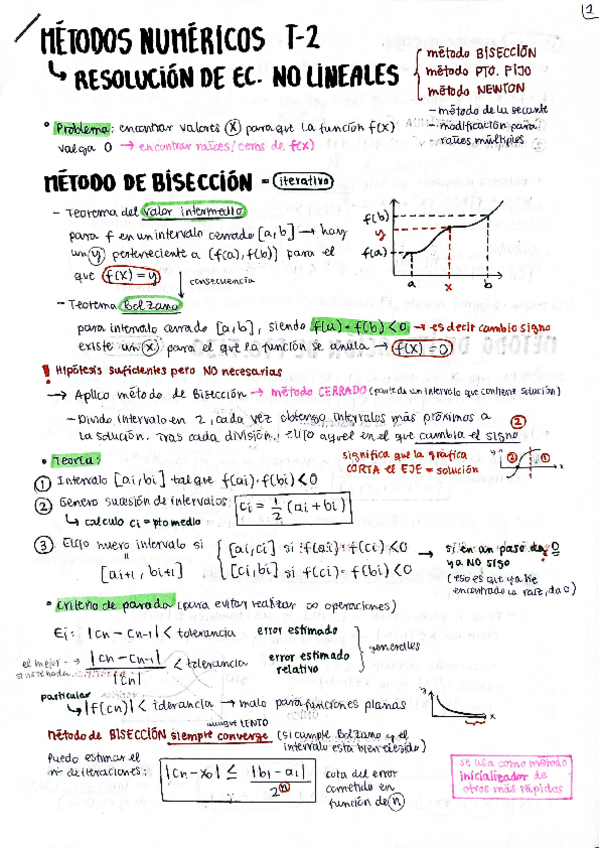 1
MÉTODOS NUMÉRICOS T-2
↳ RESOLUCIÓN DE EC. NO LINEALES
método BISECCIÓN
método PTO. FIJO
método NEWTON
- método de la secante
- modificación para
raíces múltiples
• Problema: encontrar valores (x) para que la función f(x)
valga 0 → encontrar raíces/ceros de f(x)
MÉTODO DE BISECCIÓN = iterativo
- Teorema del valor intermedio
para f en un intervalo cerrado [a,b] → hay
un (y) perteneciente a (f(a), f(b)) para el
que f(x) = y
consecuencia
f(b)
y
f(a)
a x b
- Teorema Bolzano
para intervalo cerrado [a,b], siendo f(a)·f(b)<0 → es decir cambio signo
existe un (x) para el que la función se anula → f(x)=0
! Hipótesis suficientes pero NO necesarias
→ Aplico método de Bisección → método CERRADO (parte de un intervalo que contiene solución)
- Divido intervalo en 2, cada vez obtengo intervalos más próximos a
la solución. Tras cada división, elijo aquel en el que cambia el signo
significa que la gráfica
CORTA el EJE = solución
• Teoría:
① Intervalo [ai,bi] tal que f(ai)·f(bi)<0
② Genero sucesión de intervalos: ci = 1/2 (ai + bi)
↳ calculo ci = pto medio
③ Elijo nuevo intervalo si
[ai+1, bi+1]
[ai,ci] si f(ai)·f(ci)<0
[ci,bi] si f(ci)·f(bi)<0
→ si en un paso da 0
ya NO sigo
(eso es que ya he
encontrado la raíz, da 0)
• Criterio de parada (para evitar realizar ∞ operaciones)
Ei: |cn - cn-1| < tolerancia error estimado
el mejor → |cn - cn-1| / |cn| < tolerancia error estimado
relativo
generales
particular
↳ |f(cn)| < tolerancia → malo para funciones planas
y
x
aunque LENTO
Método de BISECCIÓN siempre converge (si cumple bolzano y el
intervalo está bien elegido)
Puedo estimar el
nº de iteraciones:
|cn - x0| ≤ |b1 - a1| / 2ⁿ
cota del error
cometido en
función de (n)
se usa como método
inicializador de
otros más rápidos